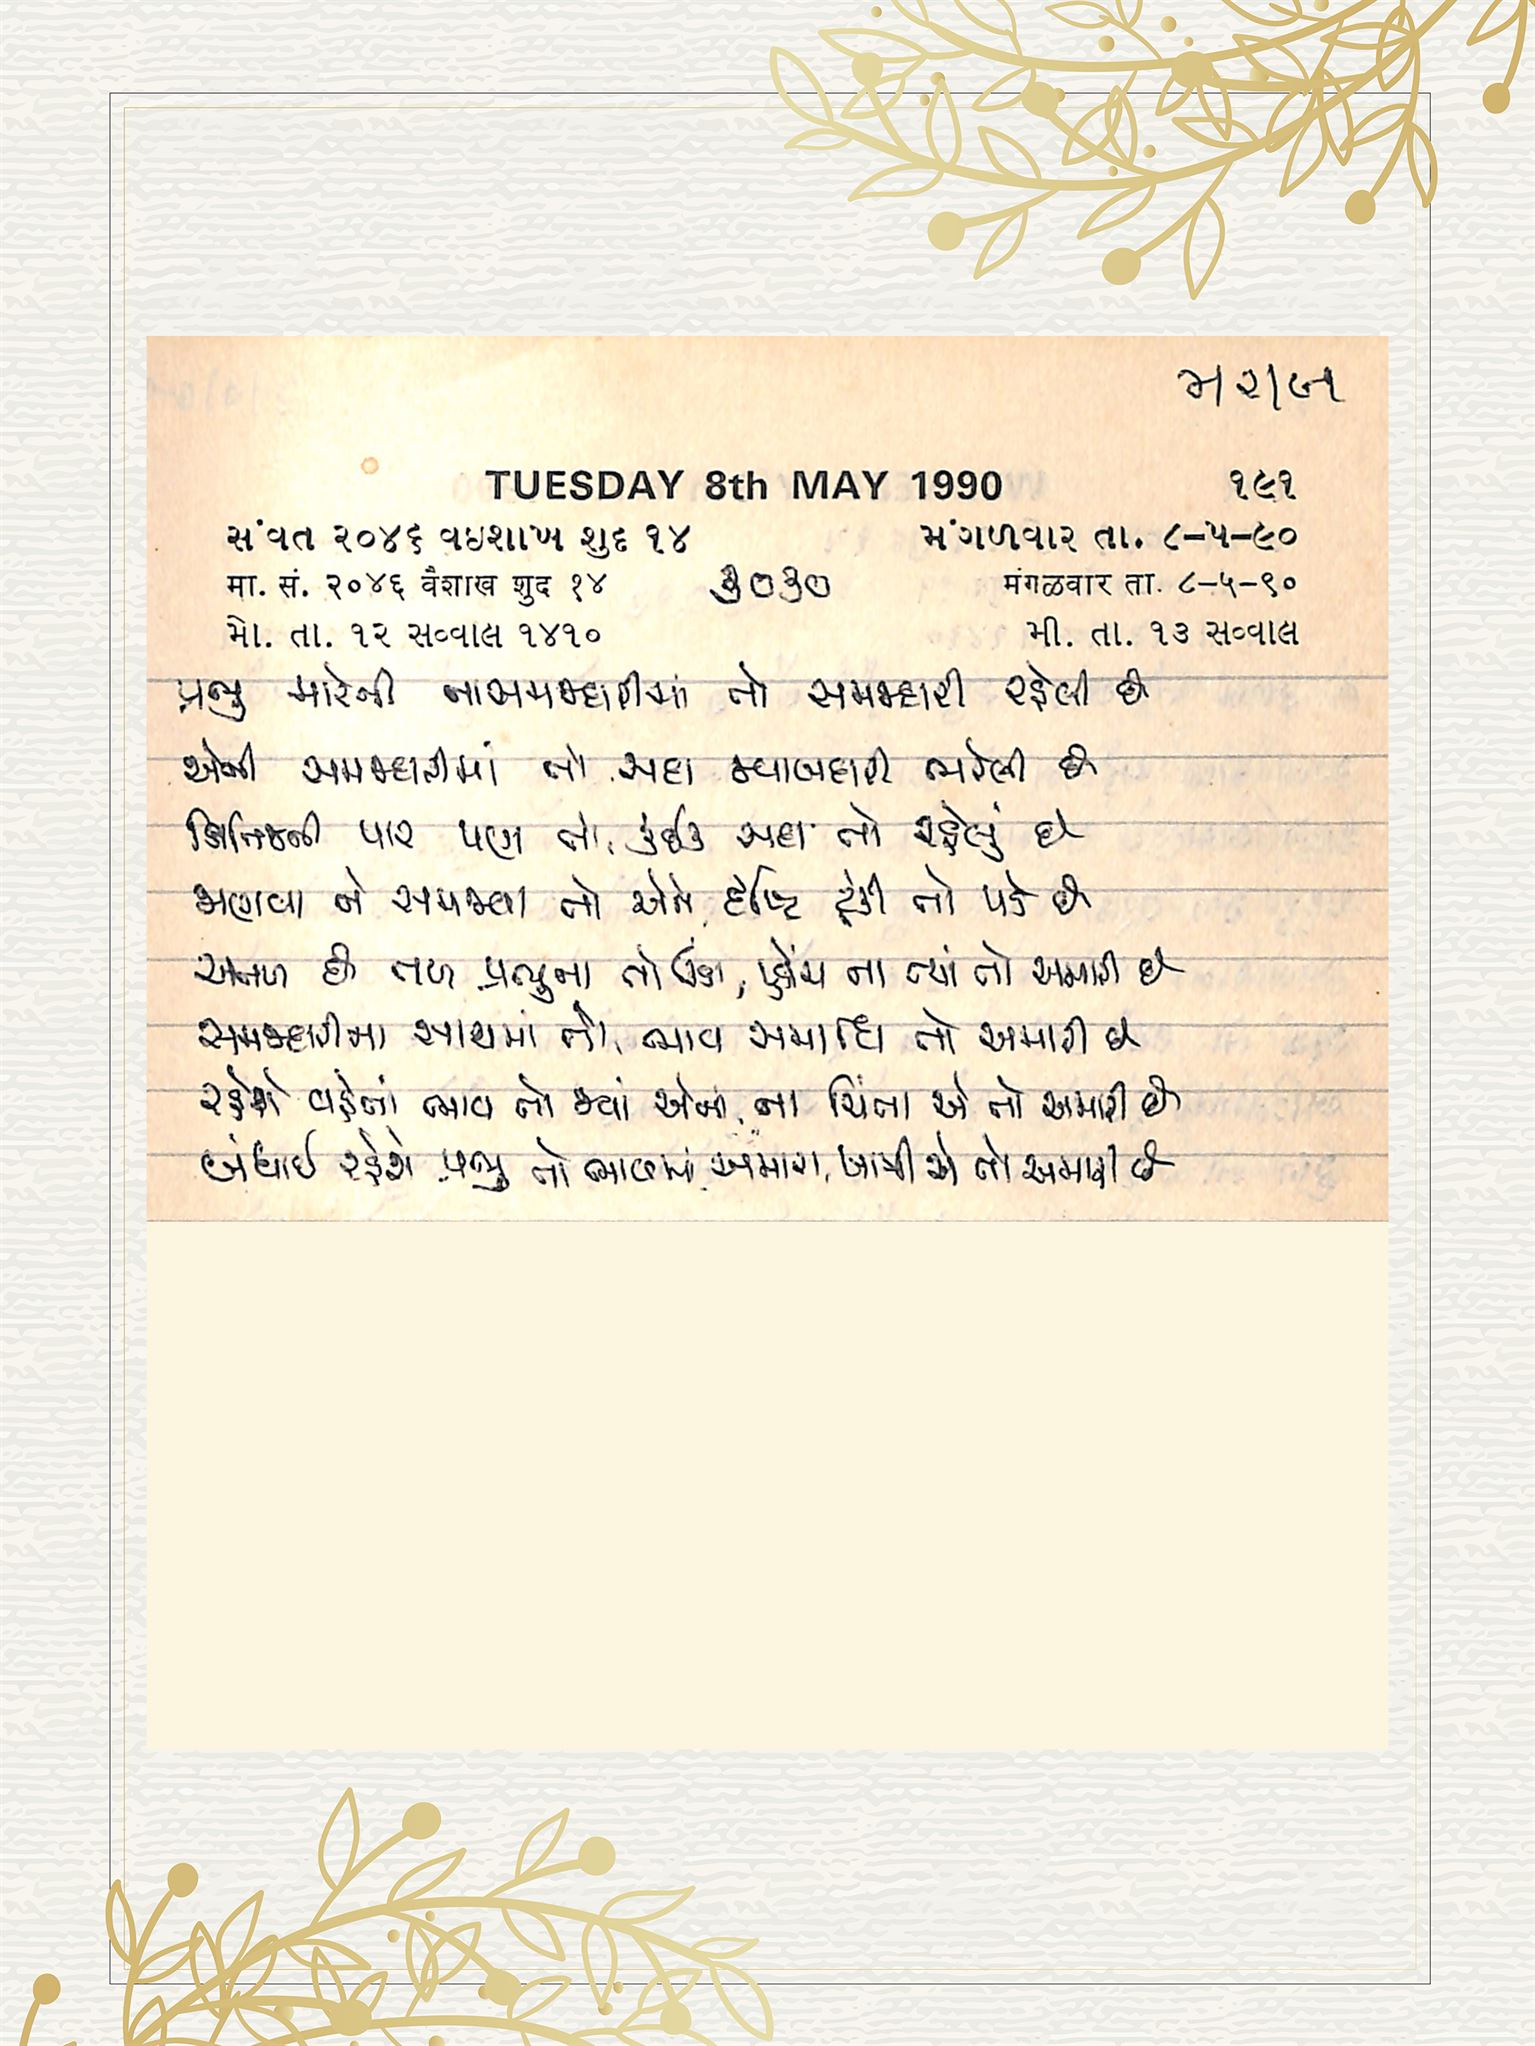 મરાબ
TUESDAY 8th MAY 1990 ૧૯૧
સંવત ૨૦૪૬ વઇશાખ શુદ ૧૪ મંગળવાર તા. ૮-૫-૯૦
मा. सं. २०४६ वैशाख शुद १४ 3030 मंगळवार ता. ८-५-९०
મો. તા. ૧૨ સવ્વાલ ૧૪૧૦ મી. તા. ૧૩ સવ્વાલ
પ્રભુ નાસમજદારીમાં તો સમજદારી રહેલી છે
એની સમજદારીમાં તો સદા જવાબદારી ભરેલી છે
ક્ષિતિજની પાર પણ તો કંઈક સદા તો રહેલું છે
જાણવા ને સમજવા તો એને દૃષ્ટિ ટૂંકી તો પડે છે
અતળ છે તળ પ્રભુના તો ઊંડા, પ્હોંચ ના ત્યાં તો અમારી છે
સમજદારીના સાથમાં તો ભાવ સમાધિ તો અમારી છે
રહેશે વહેતાં ભાવ તો જ્યાં એના ના ચિંતા એ તો અમારી છે
બંધાઈ રહેશે પ્રભુ તો ભાવમાં અમારા ખાત્રી એ તો અમારી છે